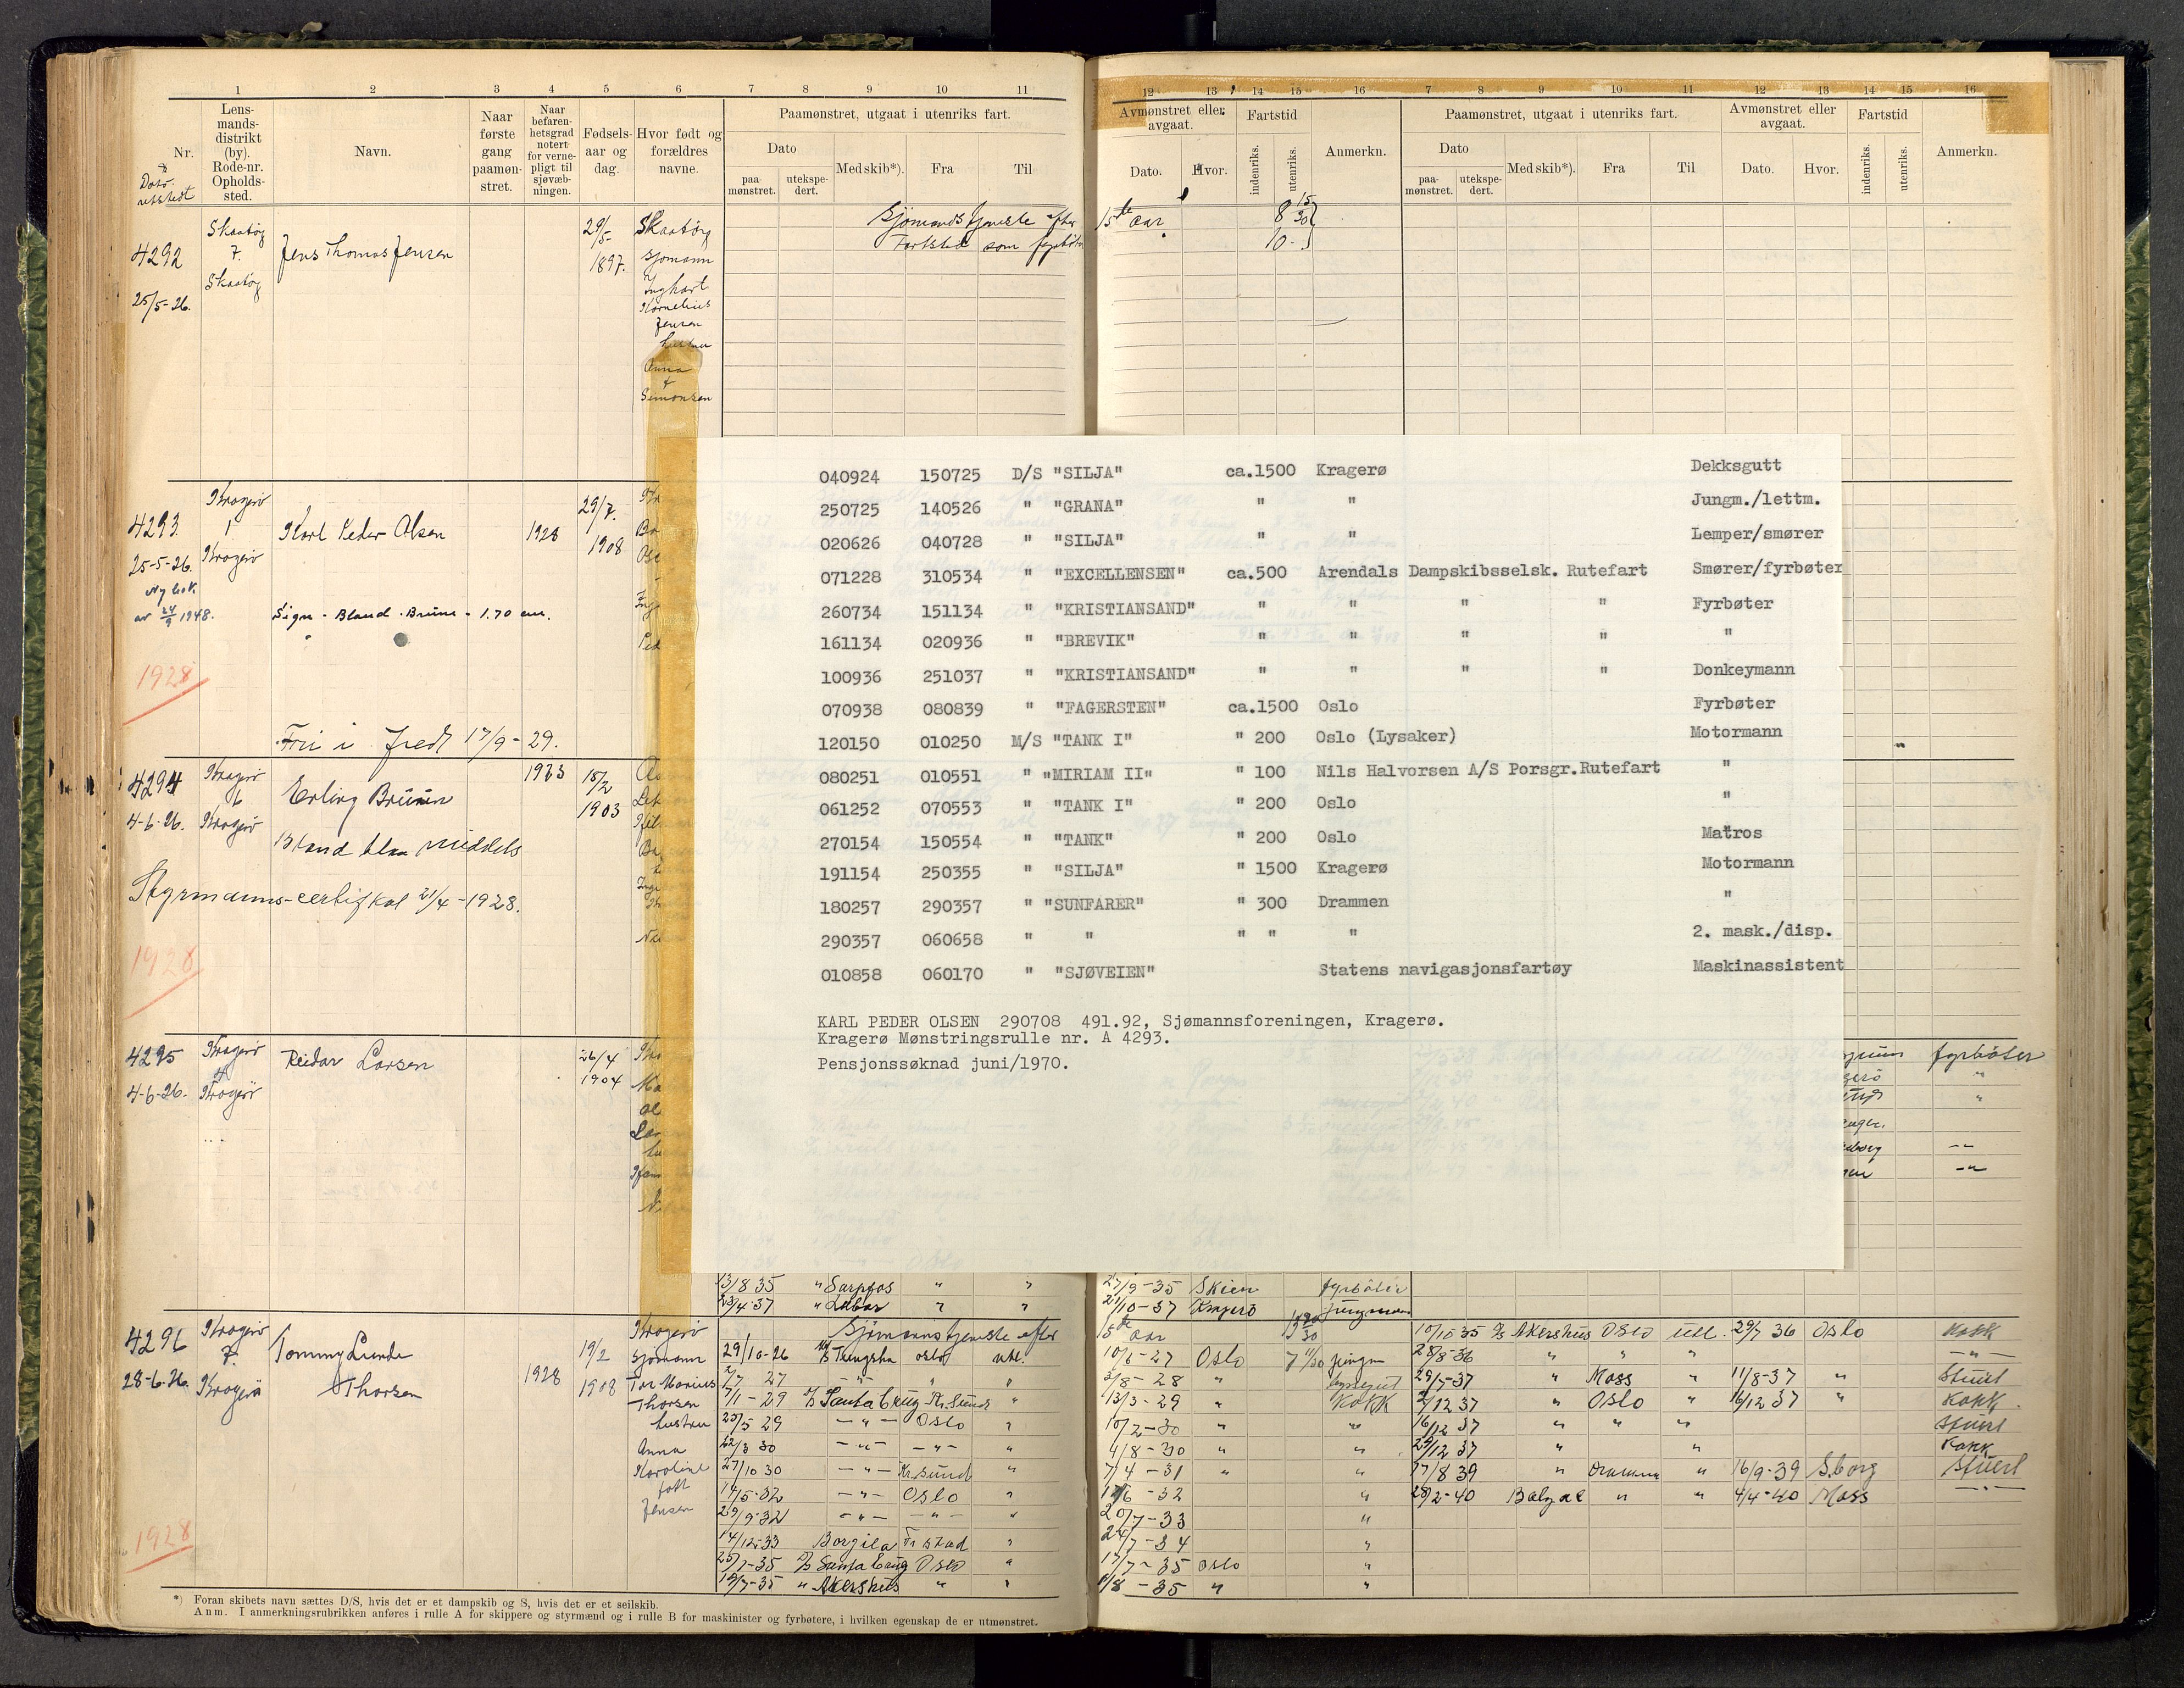 1 2 3 4 5 6 7 8 9 10 11 12 13 14 15 16 7 8 9 10 11 12 13 14 15 16
Nr.
Lens-
mands-
distrikt
(by).
Rode-nr.
Opholds-
sted.
Navn.
Naar
første
gang
paamøn-
stret.
Naar
befaren-
hetsgrad
notert
for verne-
pligt til
sjøvæb-
ningen.
Fødsels-
aar og
dag.
Hvor født og
forældres
navne.
Paamønstret, utgaat i utenriks fart.
Dato
paa-
mønstret.
utekspe-
dert.
Med skib*).
Fra
Til
Avmønstret eller
avgaat.
Dato.
Hvor.
Fartstid
indenriks.
utenriks.
Anmerkn.
Paamønstret, utgaat i utenriks fart.
Dato
paa-
mønstret.
utekspe-
dert.
Med skib*).
Fra
Til
Avmønstret eller
avgaat.
Dato.
Hvor.
Fartstid
indenriks.
utenriks.
Anmerkn.
4292
25/5-26.
Skaatøy
7.
Skaatøy
Jens Thomas Jensen
29/5-
1897.
Skaatøy
Sjømann
Kornelius
Jensen
hustru
Anna
f
Simonsen
Sjømandstjeneste efter 15de aar
Fartstid som fyrbøter
4293.
25-5-26.
Ny bok
av 24/9 1948.
Kragerø
1
Kragerø
Karl Peder Olsen
1928
29/7.
1908
Sign - Bland. Brune - 1.70 cm.
1928
Fri i fred 17/9-29.
4294
4-6-26.
Kragerø
6
Kragerø
Erling Bruun
1923
15/2
1903
Bland blaa middels
Styrmanns-certifkat 21/4-1928.
1928
4295
4-6-26.
Kragerø
4
Kragerø
Reidar Larsen
26/4
1904
040924 150725 D/S "SILJA" ca.1500 Kragerø Dekksgutt
250725 140526 " "GRANA" " " Jungm./lettm.
020626 040728 " "SILJA" " " Lemper/smører
071228 310534 " "EXCELLENSEN" ca.500 Arendals Dampskibsselsk. Rutefart Smører/fyrbøter
260734 151134 " "KRISTIANSAND" " " " " Fyrbøter
161134 020936 " "BREVIK" " " " " "
100936 251037 " "KRISTIANSAND" " " " " Donkeymann
070938 080839 " "FAGERSTEN" ca.1500 Oslo Fyrbøter
120150 010250 M/S "TANK I" " 200 Oslo (Lysaker) Motormann
080251 010551 " "MIRIAM II" " 100 Nils Halvorsen A/S Porsgr.Rutefart "
061252 070553 " "TANK I" " 200 Oslo "
270154 150554 " "TANK" " 200 Oslo Matros
191154 250355 " "SILJA" " 1500 Kragerø Motormann
180257 290357 " "SUNFARER" " 300 Drammen "
290357 060658 " " " " " 2. mask./disp.
010858 060170 " "SJØVEIEN" Statens navigasjonsfartøy Maskinassistent
KARL PEDER OLSEN 290708 491.92, Sjømannsforeningen, Kragerø.
Kragerø Mønstringsrulle nr. A 4293.
Pensjonssøknad juni/1970.
fyrbøter
13/8 35 " Sarpfos " " 27/9-35 Skien fyrbøter
23/4-37 " Labor " " 21/10-37 Kragerø
4296
28-6-26.
Kragerø
7.
Kragerø
Tommy Lunde
Thorsen
1928
19/2
1908
Kragerø
Sjømann
Tor Marius
Thorsen
hustru
Anna
Karoline
født
Jensen
1928
Sjømannstjeneste efter 15de aar
29/10-26 Oslo utl. 10/6-27 Oslo
2/7 27 -"- -"- " 2/8-28 "
7/1-29 Santa Cruz Kr.sund " 13/3-29 " Kokk
23/5 29 -"- Oslo " 10/2-30 "
22/3 30 -"- -"- " 4/8-30 " "
27/10 30 -"- Kr.sund " 7/4-31 " "
14/5-32 -"- Oslo " 1/6-32 "
29/9-32 -"- -"- " 20/7-33 "
14/12-33 Borgila Fr.stad " 24/7-34 "
23/1-35 Santa Cruz Oslo " 17/7-35 Oslo "
19/7-35 " Akershus " " 1/8-35 " "
10/10 35 Akershus Oslo utl. 29/7 36 Oslo Kokk
28/8-36 " " " -"-
29/5-37 " Moss " 11/8-37 " Stuert
2/12 37 " Oslo " 16/12 37 " Kokk.
16/12 37 " " " Stuert
29/12 37 " " Kokk
17/8 39 " Drammen " 16/9-39 S.borg Stuert
28/2-40 Balzac " " 4/4-40 Moss -"-
*) Foran skibets navn sættes D/S, hvis det er et dampskib og S, hvis det er et seilskib.
Anm. I anmerkningsrubrikken anføres i rulle A for skippere og styrmænd og i rulle B for maskinister og fyrbøtere, i hvilken egenskap de er utmønstret.